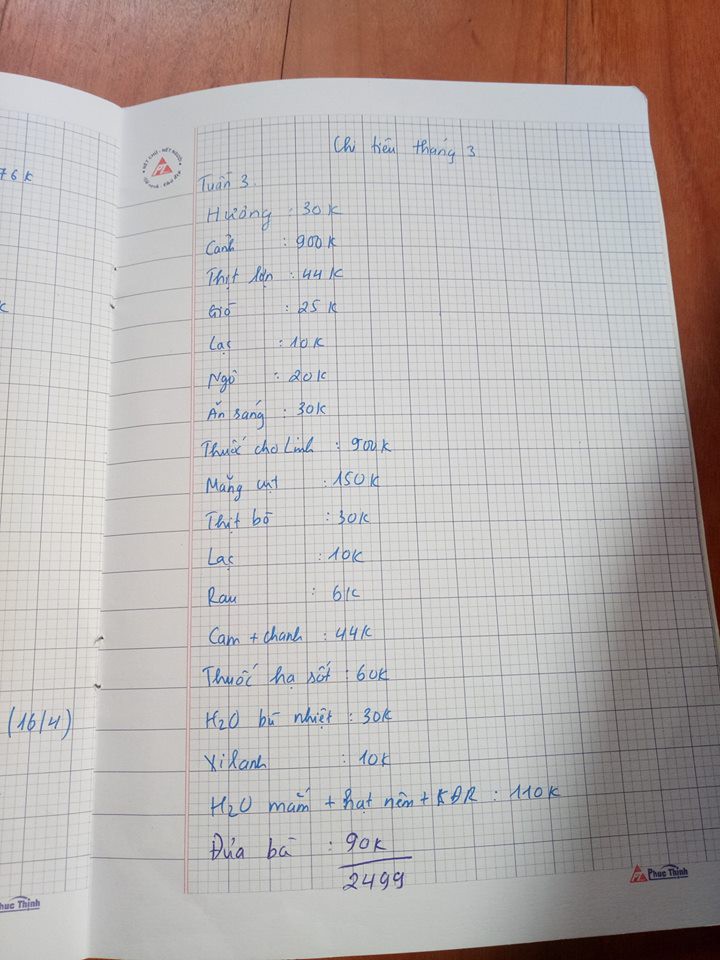 76K
NÉT CHỮ - NẾT NGƯỜI
Chi tiêu tháng 3
Tuần 3.
Hưởng : 30K
Cảnh : 900K
Thịt lợn : 44K
Giò : 25K
Lạc : 10K
Ngô : 20K
Ăn sáng : 30K
Thuốc cho Linh : 900K
Măng cụt : 150K
Thịt bò : 30K
Lạc : 10K
Rau : 6K
Cam + chanh : 44K
Thuốc hạ sốt : 60K
(16/4)
H2O bù nhiệt : 30K
Xilanh : 10K
H2O mắm + hạt nêm + KĐR : 110K
Đứa bà : 90K
2499
Phuc Thinh
Phuc Thinh